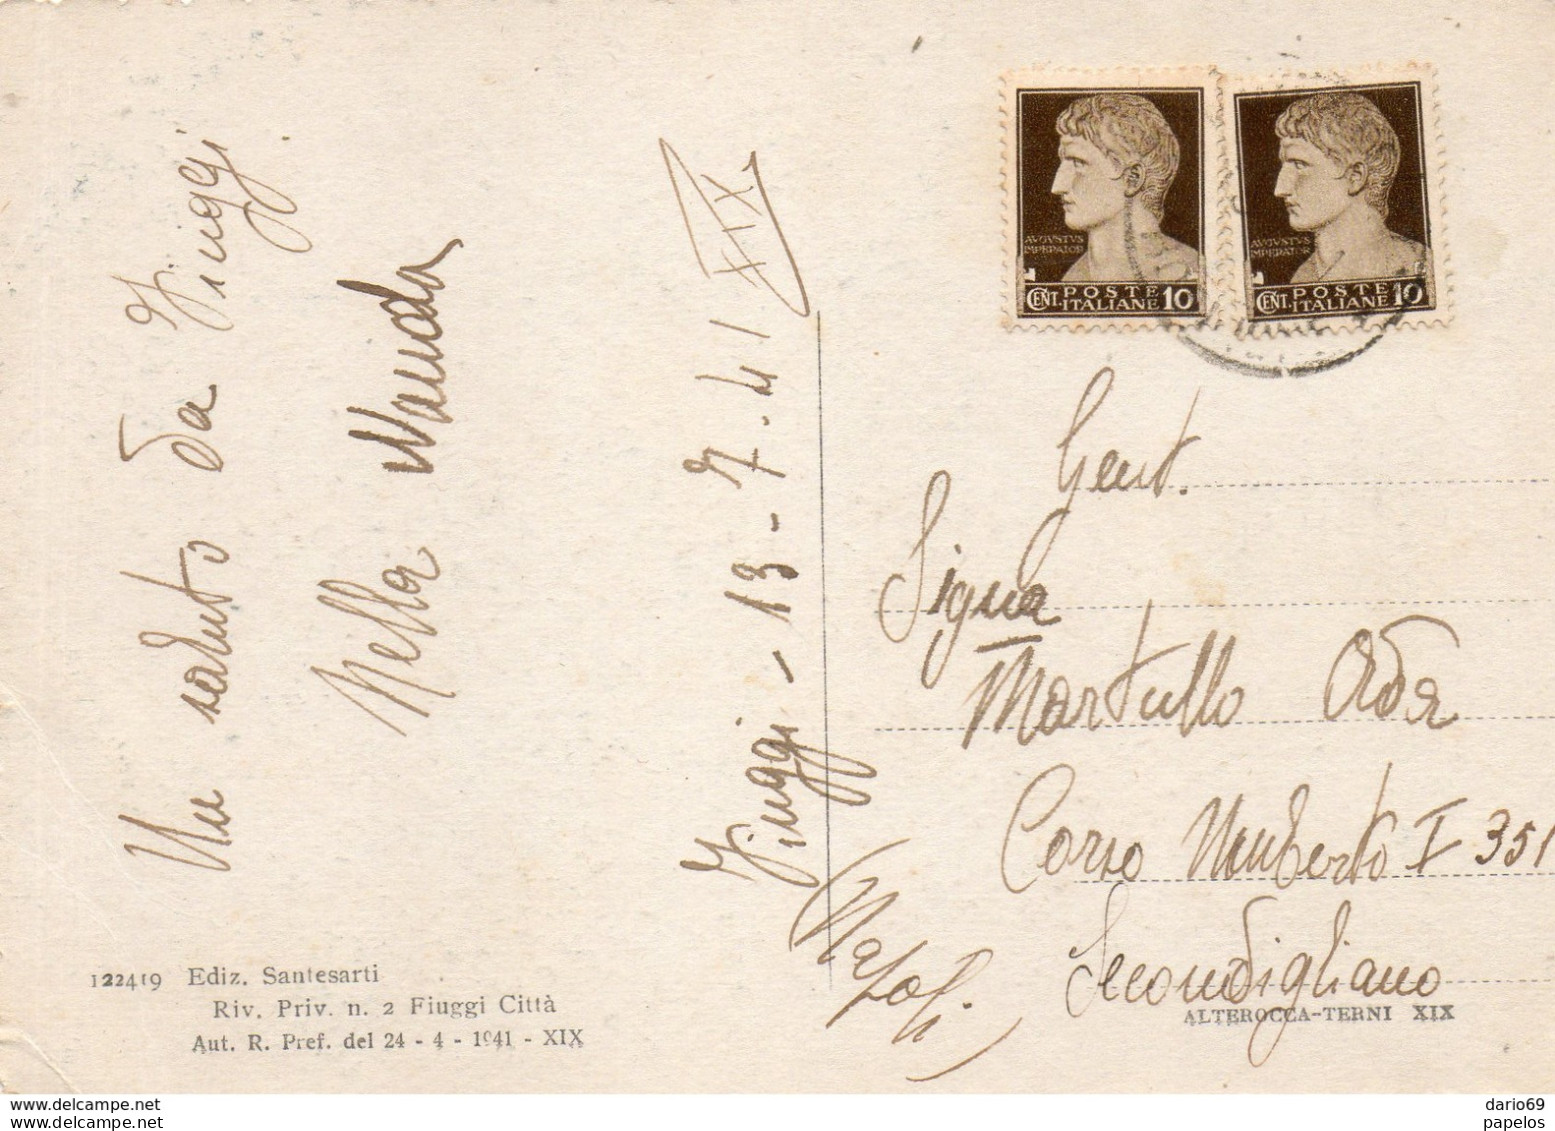 Un saluto da Fiuggi
Nella Wanda
Fiuggi - 13 - 7 - 41 XIX
AVGVSTVS
IMPERATOR
CENT. POSTE
ITALIANE 10
AVGVSTVS
IMPERATOR
CENT. POSTE
ITALIANE 10
Gent.
Sigra
Martullo Ada
Corso Umberto I 351
Secondigliano
(Napoli)
122419 Ediz. Santesarti
Riv. Priv. n. 2 Fiuggi Città
Aut. R. Pref. del 24 - 4 - 1941 - XIX
ALTEROCCA-TERNI XIX
www.delcampe.net
www.delcampe.net
dario69
papelos